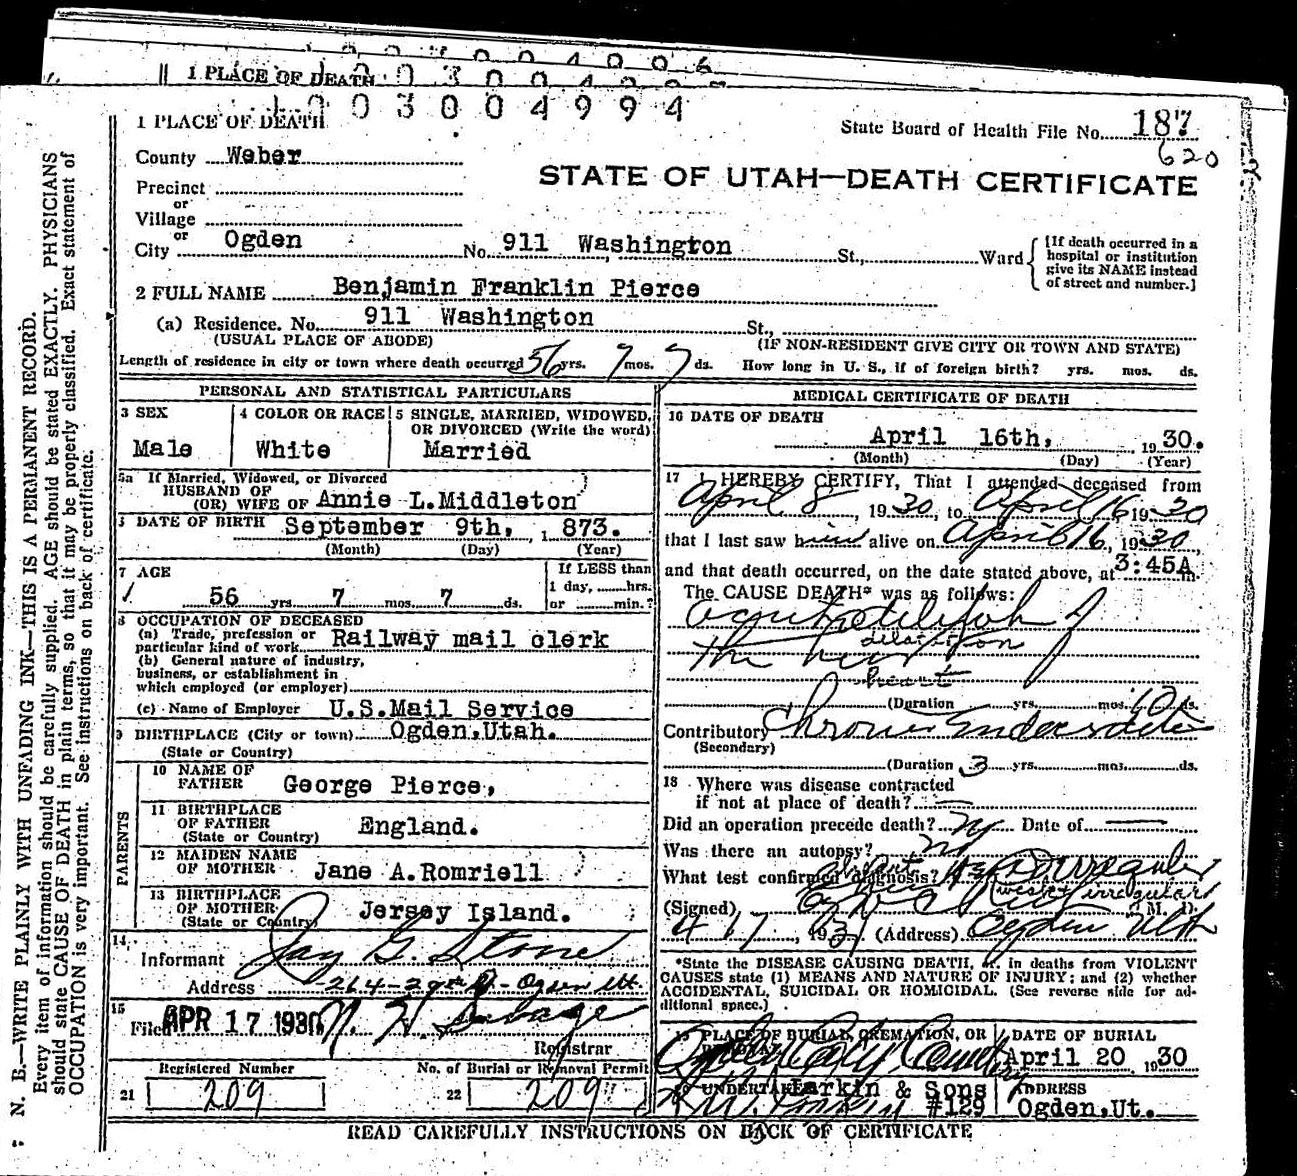 1 PLACE OF DEATH
1003004994
1 PLACE OF DEATH
State Board of Health File No. 187
620
County Weber
STATE OF UTAH—DEATH CERTIFICATE
Precinct
or
Village
or
City Ogden No. 911 Washington St., Ward
[If death occurred in a hospital or institution give its NAME instead of street and number.]
2 FULL NAME Benjamin Franklin Pierce
(a) Residence. No. 911 Washington St.,
(USUAL PLACE OF ABODE) (IF NON-RESIDENT GIVE CITY OR TOWN AND STATE)
Length of residence in city or town where death occurred 56 yrs. 7 mos. 7 ds. How long in U. S., if of foreign birth? yrs. mos. ds.
PERSONAL AND STATISTICAL PARTICULARS
3 SEX
Male
4 COLOR OR RACE
White
5 SINGLE, MARRIED, WIDOWED,
OR DIVORCED (Write the word)
Married
5a If Married, Widowed, or Divorced
HUSBAND OF
(OR) WIFE OF Annie L.Middleton
DATE OF BIRTH September 9th, 1873.
(Month) (Day) (Year)
7 AGE
56 yrs. 7 mos. 7 ds.
If LESS than
1 day, hrs.
or min.?
8 OCCUPATION OF DECEASED
(a) Trade, prefession or
particular kind of work Railway mail clerk
(b) General nature of industry,
business, or establishment in
which employed (or employer)
(c) Name of Employer U.S.Mail Service
9 BIRTHPLACE (City or town) Ogden,Utah.
(State or Country)
PARENTS
10 NAME OF
FATHER George Pierce,
11 BIRTHPLACE
OF FATHER England.
(State or Country)
12 MAIDEN NAME
OF MOTHER Jane A.Romriell
13 BIRTHPLACE
OF MOTHER Jersey Island.
(State or Country)
14
Informant Jay G. Stone
Address 264-29th St - Ogden Ut.
15
Filed APR 17 1930 Savage
Registrar
Registered Number
21 209
No. of Burial or Removal Permit
22 209
MEDICAL CERTIFICATE OF DEATH
16 DATE OF DEATH
April 16th, 1930.
(Month) (Day) (Year)
17 I HEREBY CERTIFY, That I attended deceased from
April 8, 1930, to April 16 1930
that I last saw him alive on April 16, 1930,
and that death occurred, on the date stated above, at 3:45A m.
The CAUSE DEATH* was as follows:
Acute dilatation of
dilation
the heart
heart
(Duration yrs. mos. 10 ds.
Contributory Chronic Endocarditis
(Secondary)
(Duration 3 yrs. mos. ds.
18 Where was disease contracted
if not at place of death?
Did an operation precede death? No Date of
Was there an autopsy? No
What test confirmed diagnosis? Irregular
weak irregular
(Signed) M. D.
4 17, 193 (Address) Ogden Utah
*State the DISEASE CAUSING DEATH, or in deaths from VIOLENT
CAUSES state (1) MEANS AND NATURE OF INJURY; and (2) whether
ACCIDENTAL, SUICIDAL OR HOMICIDAL. (See reverse side for ad-
ditional space.)
19 PLACE OF BURIAL, CREMATION, OR
Ogden City Cemetery
DATE OF BURIAL
April 20 1930
UNDERTAKER Larkin & Sons
#129
ADDRESS
Ogden,Ut.
READ CAREFULLY INSTRUCTIONS ON BACK OF CERTIFICATE
N. B.—WRITE PLAINLY WITH UNFADING INK—THIS IS A PERMANENT RECORD.
Every item of information should be carefully supplied. AGE should be stated EXACTLY. PHYSICIANS
should state CAUSE OF DEATH in plain terms, so that it may be properly classified. Exact statement of
OCCUPATION is very important. See instructions on back of certificate.